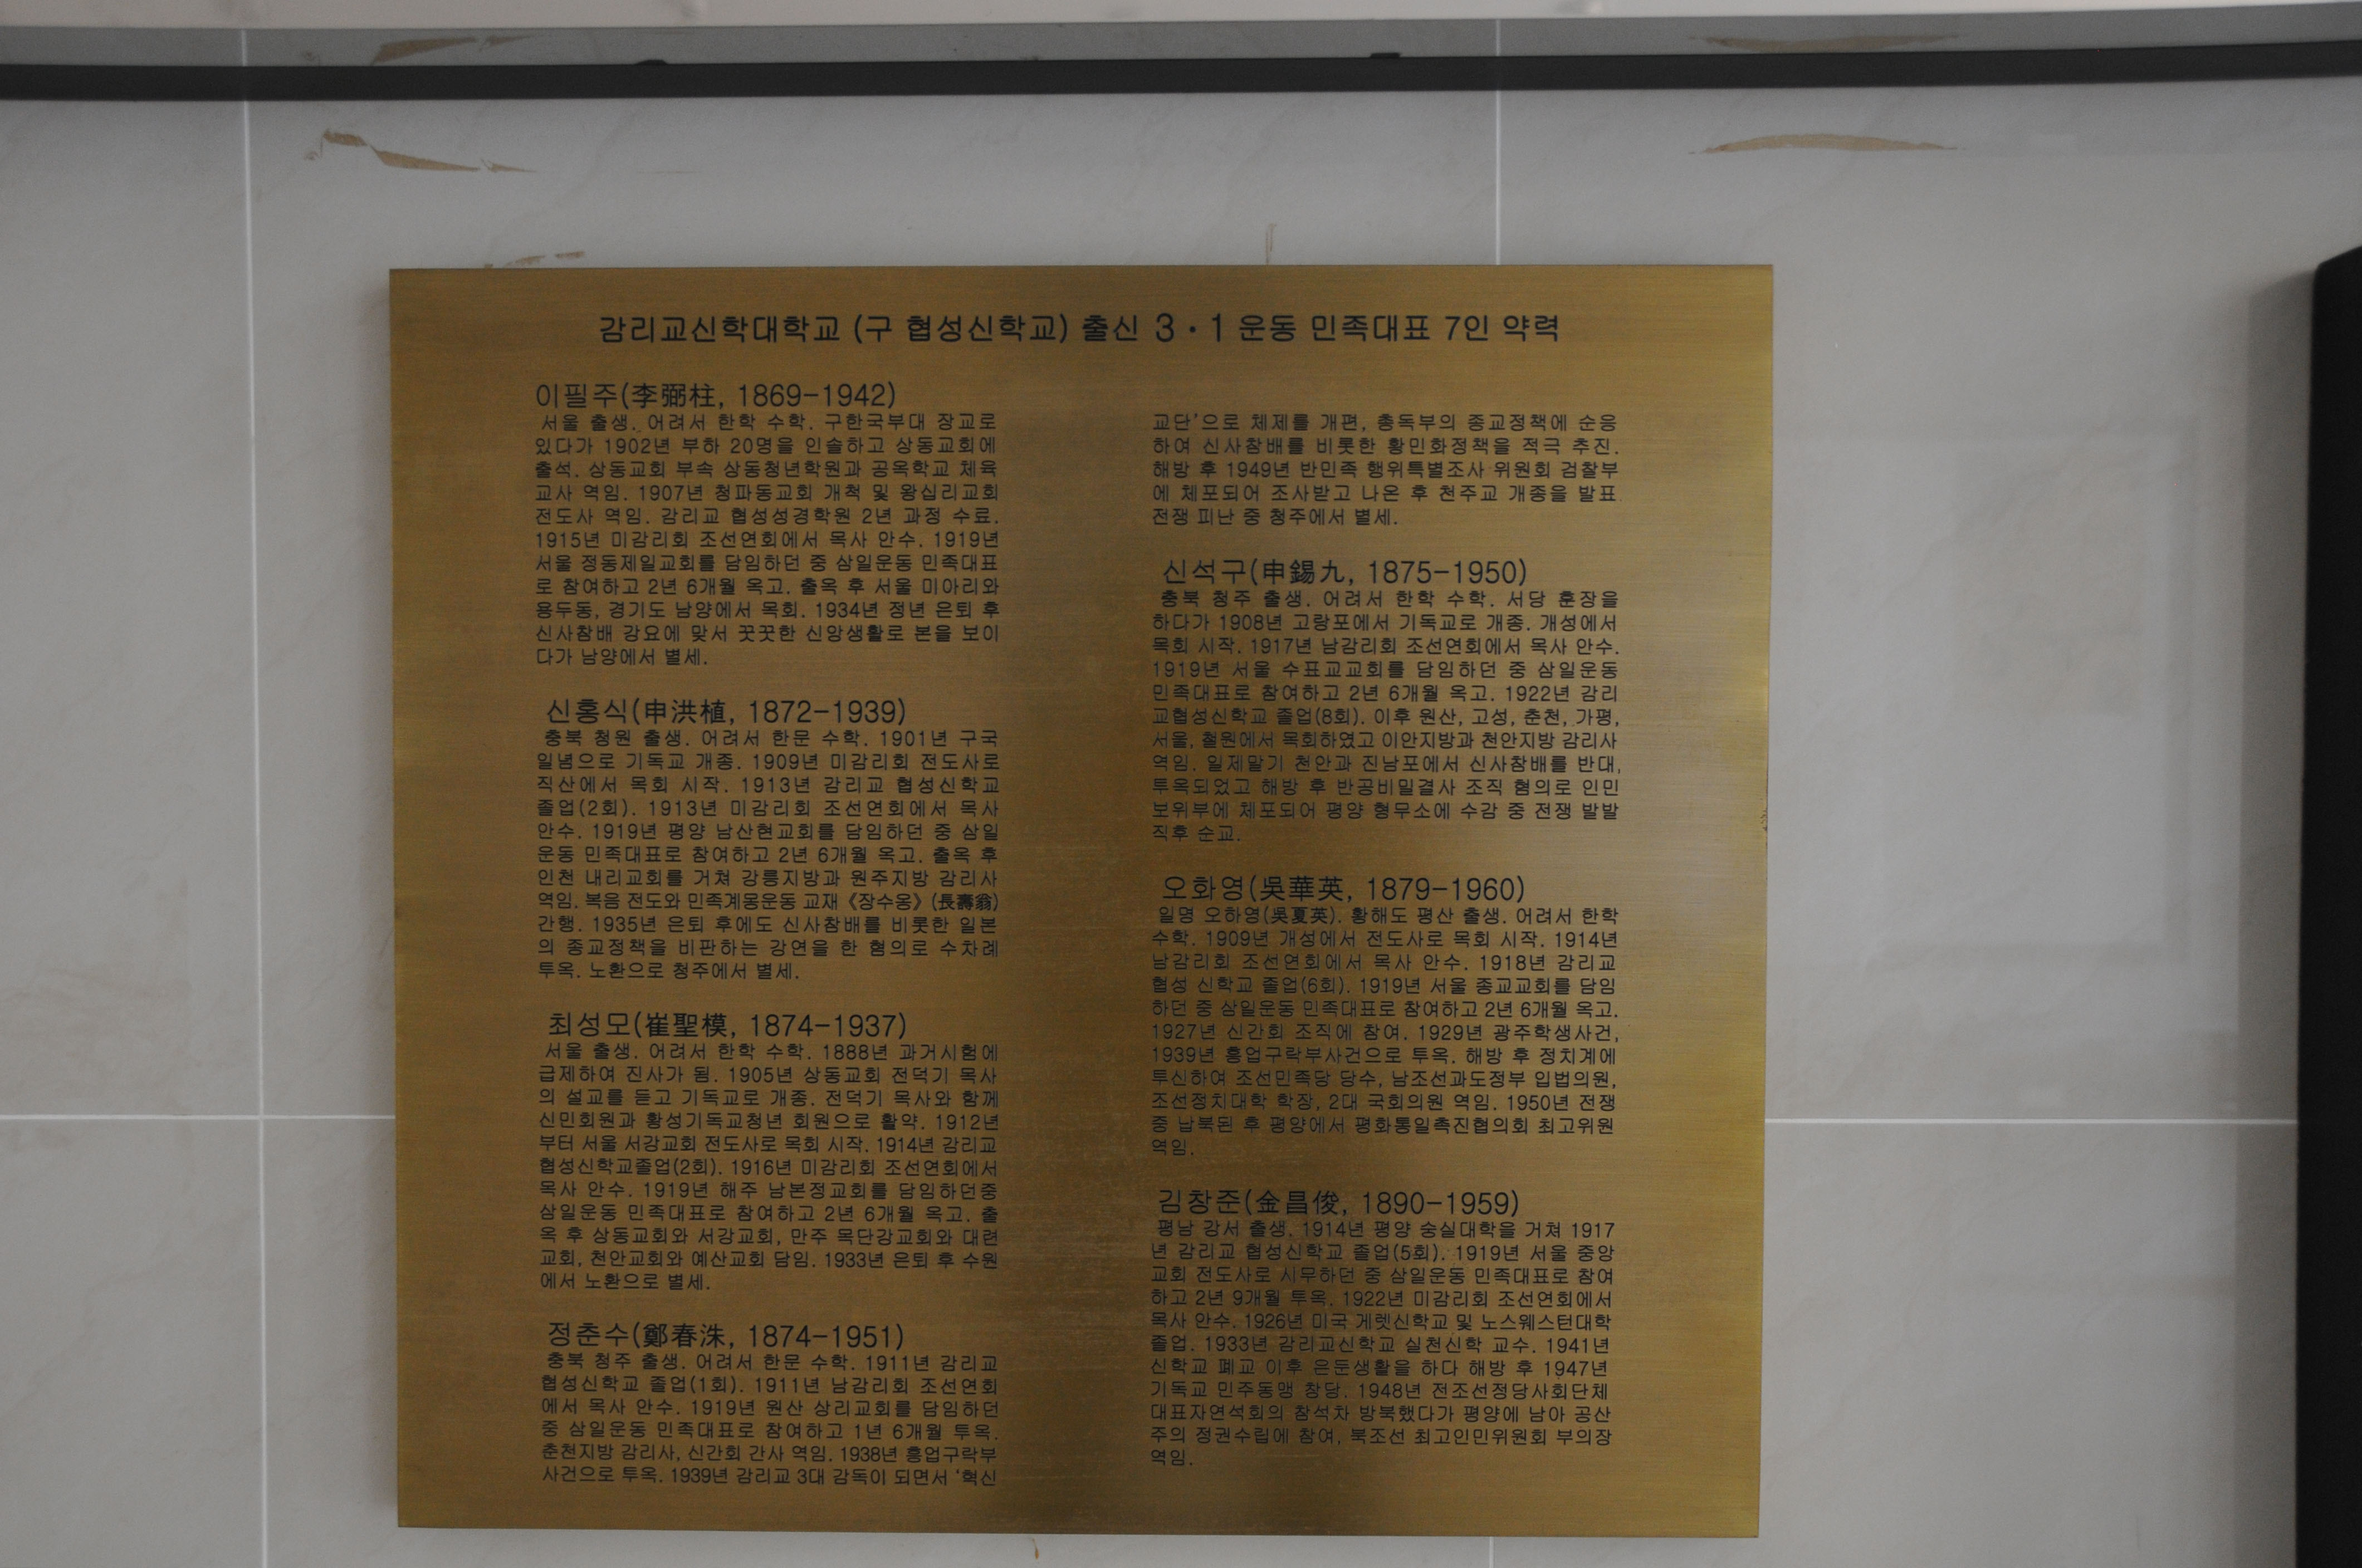 감리교신학대학교 (구 협성신학교) 출신 3·1 운동 민족대표 7인 약력
이필주(李弼柱, 1869-1942)
서울 출생. 어려서 한학 수학. 구한국부대 장교로
있다가 1902년 부하 20명을 인솔하고 상동교회에
출석. 상동교회 부속 상동청년학원과 공옥학교 체육
교사 역임. 1907년 청파동교회 개척 및 왕십리교회
전도사 역임. 감리교 협성성경학원 2년 과정 수료.
1915년 미감리회 조선연회에서 목사 안수. 1919년
서울 정동제일교회를 담임하던 중 삼일운동 민족대표
로 참여하고 2년 6개월 옥고. 출옥 후 서울 미아리와
용두동, 경기도 남양에서 목회. 1934년 정년 은퇴 후
신사참배 강요에 맞서 꿋꿋한 신앙생활로 본을 보이
다가 남양에서 별세.
신홍식(申洪植, 1872-1939)
충북 청원 출생. 어려서 한문 수학. 1901년 구국
일념으로 기독교 개종. 1909년 미감리회 전도사로
직산에서 목회 시작. 1913년 감리교 협성신학교
졸업(2회). 1913년 미감리회 조선연회에서 목사
안수. 1919년 평양 남산현교회를 담임하던 중 삼일
운동 민족대표로 참여하고 2년 6개월 옥고. 출옥 후
인천 내리교회를 거쳐 강릉지방과 원주지방 감리사
역임. 복음 전도와 민족계몽운동 교재《장수옹》(長壽翁)
간행. 1935년 은퇴 후에도 신사참배를 비롯한 일본
의 종교정책을 비판하는 강연을 한 혐의로 수차례
투옥. 노환으로 청주에서 별세.
최성모(崔聖模, 1874-1937)
서울 출생. 어려서 한학 수학. 1888년 과거시험에
급제하여 진사가 됨. 1905년 상동교회 전덕기 목사
의 설교를 듣고 기독교로 개종. 전덕기 목사와 함께
신민회원과 황성기독교청년 회원으로 활약. 1912년
부터 서울 서강교회 전도사로 목회 시작. 1914년 감리교
협성신학교졸업(2회). 1916년 미감리회 조선연회에서
목사 안수. 1919년 해주 남본정교회를 담임하던중
삼일운동 민족대표로 참여하고 2년 6개월 옥고. 출
옥 후 상동교회와 서강교회, 만주 목단강교회와 대련
교회, 천안교회와 예산교회 담임. 1933년 은퇴 후 수원
에서 노환으로 별세.
정춘수(鄭春洙, 1874-1951)
충북 청주 출생. 어려서 한문 수학. 1911년 감리교
협성신학교 졸업(1회). 1911년 남감리회 조선연회
에서 목사 안수. 1919년 원산 상리교회를 담임하던
중 삼일운동 민족대표로 참여하고 1년 6개월 투옥.
춘천지방 감리사, 신간회 간사 역임. 1938년 흥업구락부
사건으로 투옥. 1939년 감리교 3대 감독이 되면서 '혁신
교단'으로 체제를 개편, 총독부의 종교정책에 순응
하여 신사참배를 비롯한 황민화정책을 적극 추진.
해방 후 1949년 반민족 행위특별조사 위원회 검찰부
에 체포되어 조사받고 나온 후 천주교 개종을 발표.
전쟁 피난 중 청주에서 별세.
신석구(申錫九, 1875-1950)
충북 청주 출생. 어려서 한학 수학. 서당 훈장을
하다가 1908년 고랑포에서 기독교로 개종. 개성에서
목회 시작. 1917년 남감리회 조선연회에서 목사 안수.
1919년 서울 수표교교회를 담임하던 중 삼일운동
민족대표로 참여하고 2년 6개월 옥고. 1922년 감리
교협성신학교 졸업(8회). 이후 원산, 고성, 춘천, 가평,
서울, 철원에서 목회하였고 이안지방과 천안지방 감리사
역임. 일제말기 천안과 진남포에서 신사참배를 반대,
투옥되었고 해방 후 반공비밀결사 조직 혐의로 인민
보위부에 체포되어 평양 형무소에 수감 중 전쟁 발발
직후 순교.
오화영(吳華英, 1879-1960)
일명 오하영(吳夏英). 황해도 평산 출생. 어려서 한학
수학. 1909년 개성에서 전도사로 목회 시작. 1914년
남감리회 조선연회에서 목사 안수. 1918년 감리교
협성 신학교 졸업(6회). 1919년 서울 종교교회를 담임
하던 중 삼일운동 민족대표로 참여하고 2년 6개월 옥고.
1927년 신간회 조직에 참여. 1929년 광주학생사건,
1939년 흥업구락부사건으로 투옥. 해방 후 정치계에
투신하여 조선민족당 당수, 남조선과도정부 입법의원,
조선정치대학 학장, 2대 국회의원 역임. 1950년 전쟁
중 납북된 후 평양에서 평화통일촉진협의회 최고위원
역임.
김창준(金昌俊, 1890-1959)
평남 강서 출생. 1914년 평양 숭실대학을 거쳐 1917
년 감리교 협성신학교 졸업(5회). 1919년 서울 중앙
교회 전도사로 시무하던 중 삼일운동 민족대표로 참여
하고 2년 9개월 투옥. 1922년 미감리회 조선연회에서
목사 안수. 1926년 미국 게렛신학교 및 노스웨스턴대학
졸업. 1933년 감리교신학교 실천신학 교수. 1941년
신학교 폐교 이후 은둔생활을 하다 해방 후 1947년
기독교 민주동맹 창당. 1948년 전조선정당사회단체
대표자연석회의 참석차 방북했다가 평양에 남아 공산
주의 정권수립에 참여, 북조선 최고인민위원회 부의장
역임.